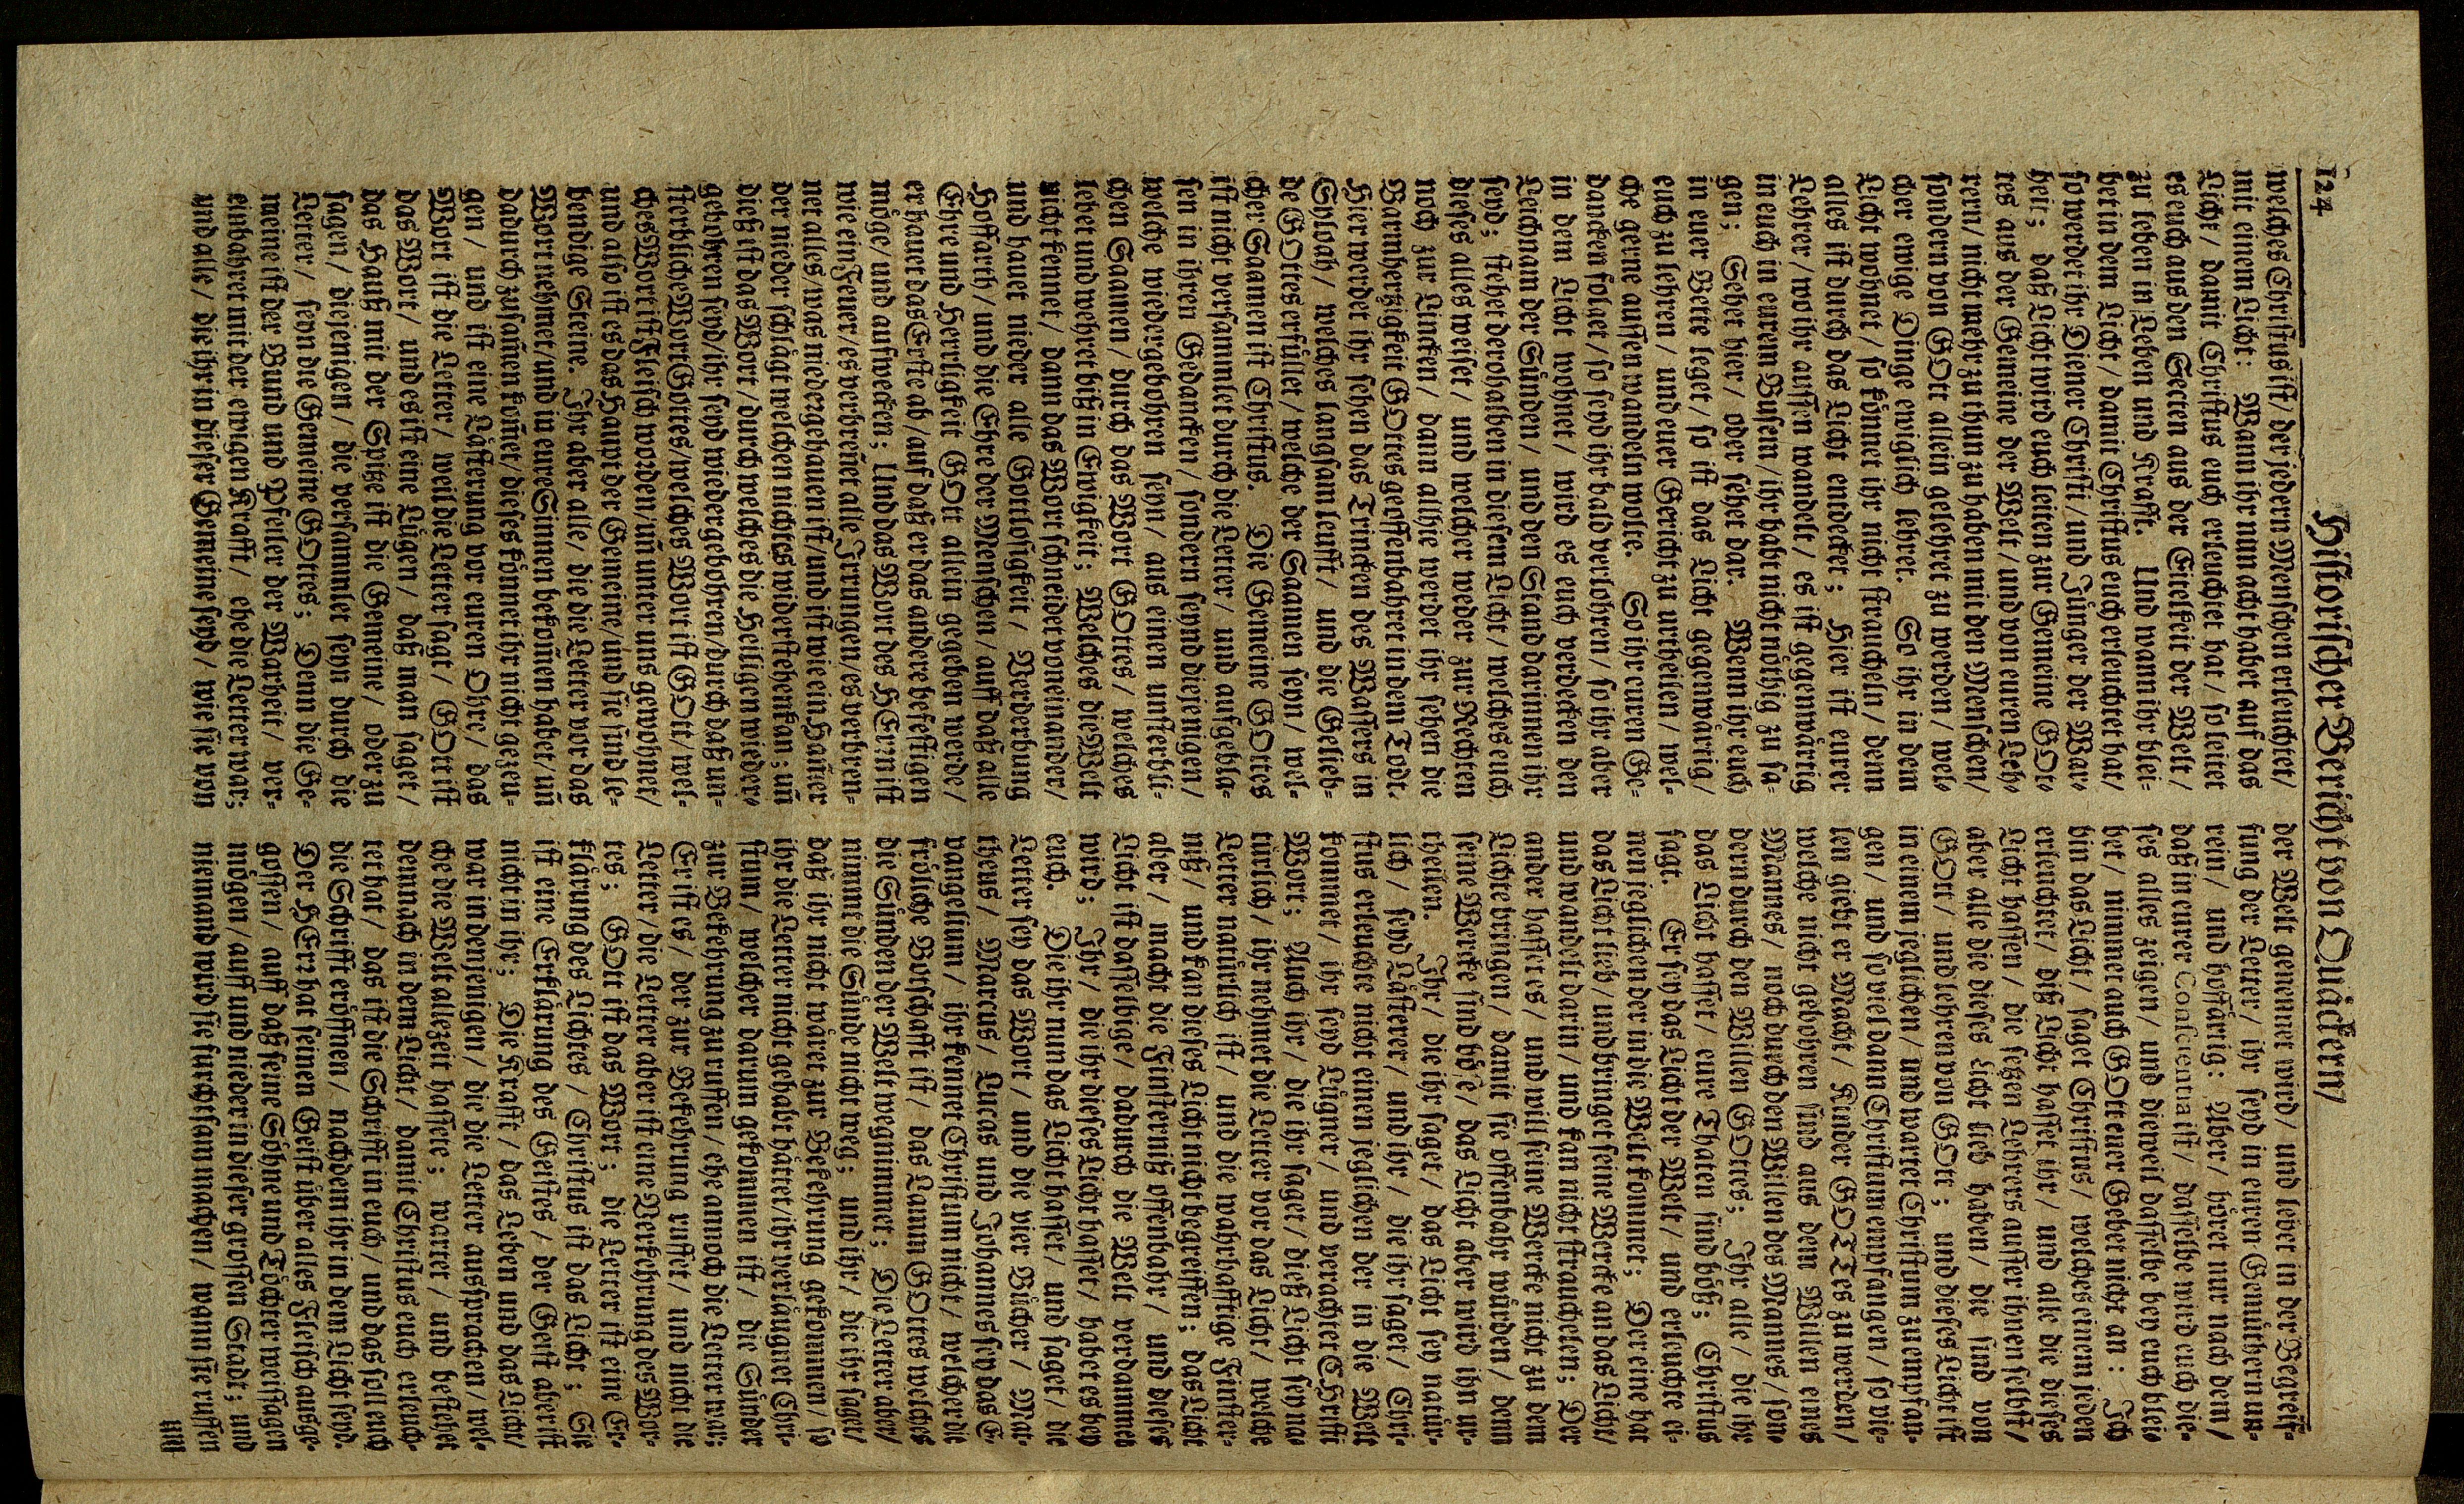 124 Historischer Bericht von Quäckern/
welches Christus ist/ der jedern Menschen erleuchtet/
mit einem Licht: Wann ihr nun acht habet auf das
Licht/ damit Christus euch erleuchtet hat/ so leitet
es euch aus den Secten aus der Eitelkeit der Welt/
zu leben in Leben und Krafft. Und wann ihr blei-
bet in dem Licht/ damit Christus euch erleuchtet hat/
so werdet ihr Diener Christi/ und Jünger der War-
heit; daß Licht wird euch leiten zur Gemeine GOt-
tes aus der Gemeine der Welt/ und von euren Leh-
rern/ nicht mehr zu thun zu haben mit den Menschen/
sondern von GOtt allein gelehret zu werden/ wel-
cher ewige Dinge ewiglich lehret. So ihr in dem
Licht wohnet/ so könnet ihr nicht straucheln/ denn
alles ist durch das Licht entdecket; Hier ist eurer
Lehrer/ wo ihr aussen wandelt/ es ist gegenwärtig
in euch in eurem Busen/ ihr habt nicht nöthig zu sa-
gen; Sehet hier/ oder sehet dar. Wenn ihr euch
in euer Bette leget/ so ist das Licht gegenwärtig/
euch zu lehren/ und euer Gericht zu urtheilen/ wel-
che gerne aussen wandeln wolte. So ihr euren Ge-
dancken folget/ so seyd ihr bald verlohren/ so ihr aber
in dem Licht wohnet/ wird es euch verdecken den
Leichnam der Sünden/ und den Stand darinnen ihr
seyd; stehet derohalben in diesem Licht/ welches euch
dieses alles weiset/ und welcher weder zur Rechten
noch zur Lincken/ dann allhie werdet ihr sehen die
Barmhertzigkeit GOttes geoffenbahret in dem Todt.
Hier werdet ihr sehen das Trincken des Wassers in
Siloah/ welches langsam leufft/ und die Gelieb-
de GOttes erfüllet/ welche der Saamen seyn/ wel-
cher Saamen ist Christus. Die Gemeine GOttes
ist nicht versammlet durch die Letter/ und aufgebla-
sen in ihren Gedancken/ sondern seynd diejenigen/
welche wiedergebohren seyn/ aus einen unsterbli-
chen Saamen/ durch das Wort GOttes/ welches
lebet und wehret biß in Ewigkeit; Welches die Welt
nicht kennet/ dann das Wort schneidet voneinander/
und hauet nieder alle Gottlosigkeit/ Verderbung
Hoffarth/ und die Ehre der Menschen/ auff daß alle
Ehre und Herrligkeit GOtt allein gegeben werde/
er hauet das Erste ab/ auf daß er das andere befestigen
möge/ und aufwecken; Und das Wort des HErrn ist
wie ein Feuer/ es verbreñet alle Irrungen/ es verbren-
net alles/ was niedergehauen ist/ und ist wie ein Hañer
der nieder schlägt welchen nichtes widerstehen kan; uñ
dieß ist das Wort/ durch welches die Heiligen wieder-
gebohren seyd/ ihr seyd wiedergebohren/ durch daß un-
sterbliche Wort Gottes/ welches Wort ist GOtt/ wel-
ches Wort ist Fleisch worden/ uñ unter uns gewohnet/
und also ist es das Haupt der Gemeine/ und sie sind le-
bendige Steine. Ihr aber alle/ die die Letter vor das
Wort nehmet/ und in eure Sinnen bekoñen habet/ uñ
dadurch zusañen koñet/ dieses könnet ihr nicht gezeu-
gen/ und ist eine Lästerung vor euren Ohre/ das
Wort ist die Letter/ weil die Letter sagt/ GOtt ist
das Wort/ und es ist eine Lügen/ daß man saget/
das Hauß mit der Spitze ist die Gemeine/ oder zu
sagen/ diejenigen/ die versammlet seyn durch die
Letter/ seyn die Gemeine GOttes; Denn die Ge-
meine ist der Bund und Pfeiler der Warheit/ ver-
einbahret mit der ewigen Krafft/ ehe die Letter war;
und alle/ die ihr in dieser Gemeine seyd/ wie sie von
der Welt genennet wird/ und lebet in der Begreif-
fung der Letter/ ihr seyd in euren Gemüthern un-
rein/ und hoffärtig: Aber/ höret nur nach dem/
daß in eurer Conscientia ist/ dasselbe wird euch die-
ses alles zeigen/ und dieweil dasselbe bey euch blei-
bet/ nimmet auch GOtt euer Gebet nicht an: Ich
bin das Licht/ saget Christus/ welches einem jeden
erleuchtet/ diß Licht hasset ihr/ und alle die dieses
Licht hassen/ die setzen Lehrers ausser ihnen selbst/
aber alle die dieses Licht lieb haben/ die sind von
GOtt/ und lehren von GOtt; und dieses Licht ist
in einem jeglichen/ und wartet Christum zu empfan-
gen/ und so viel dann Christum empfangen/ so vie-
len giebt er Macht/ Kinder GOTTes zu werden/
welche nicht gebohren sind aus dem Willen eines
Mannes/ noch durch den Willen des Mannes/ son-
dern durch den Willen GOttes; Ihr alle/ die ihr
das Licht hasset/ eure Thaten sind böß; Christus
sagt. Er sey das Licht der Welt/ und erleuchte ei-
nen jeglichen der in die Welt kommet; Der eine hat
das Licht lieb/ und bringet seine Wercke an das Licht/
und wandelt darin/ und kan nicht straucheln; Der
ander hasset es/ und will seine Wercke nicht zu dem
Lichte bringen/ damit sie offenbahr würden/ denn
seine Wercke sind böse/ das Licht aber wird ihn ur-
theilen. Ihr/ die ihr saget/ das Licht sey natür-
lich/ seyd Lästerer/ und ihr/ die ihr saget/ Chri-
stus erleuchte nicht einen jeglichen der in die Welt
kommet/ ihr seyd Lügner/ und verachtet CHristi
Wort; Auch ihr/ die ihr saget/ dieß Licht sey na-
türlich/ ihr nehmet die Letter vor das Licht/ welche
Letter natürlich ist/ und die wahrhafftige Finster-
niß/ und kan dieses Licht nicht begreiffen; das Licht
aber/ macht die Finsterniß offenbahr/ und dieses
Licht ist dasselbige/ dadurch die Welt verdammet
wird; Ihr/ die ihr dieses Licht hasset/ habet es bey
euch. Die ihr nun das Licht hasset/ und saget/ die
Letter sey das Wort/ und die vier Bücher/ Mat-
theus/ Marcus/ Lucas und Johannes sey das E-
vangelium/ ihr kennet Christum nicht/ welcher die
fröliche Botschafft ist/ das Lamm GOttes welches
die Sünden der Welt wegnimmet; Die Letter aber/
nimmt die Sünde nicht weg; und ihr/ die ihr saget/
daß ihr nicht wäret zur Bekehrung gekommen/ so
ihr die Letter nicht gehabt hättet/ ihr verläugnet Chri-
stum/ welcher darum gekommen ist/ die Sünder
zur Bekehrung zu ruffen/ ehe annoch die Letter war;
Er ist es/ der zur Bekehrung ruffet/ und nicht die
Letter/ die Letter aber ist eine Verkehrung des Wor-
tes; GOtt ist das Wort; die Letter ist eine Er-
klärung des Lichtes/ Christus ist das Licht; Sie
ist eine Erklärung des Geistes/ der Geist aber ist
nicht in ihr; Die Krafft/ das Leben und das Licht/
war in denjenigen/ die die Letter aussprachen/ wel-
che die Welt allezeit hassete; wartet/ und bestehet
demnach in dem Licht/ damit Christus euch erleuch-
tet hat/ das ist die Schrifft in euch/ und das soll euch
die Schrifft eröffnen/ nachdem ihr in dem Licht seyd.
Der HErr hat seinen Geist über alles Fleisch ausge-
gossen/ auff daß seine Söhne und Töchter weissagen
mögen/ auff und nieder in dieser grossen Stadt; und
niemand wird sie furchtsam machen/ wann sie ruffen